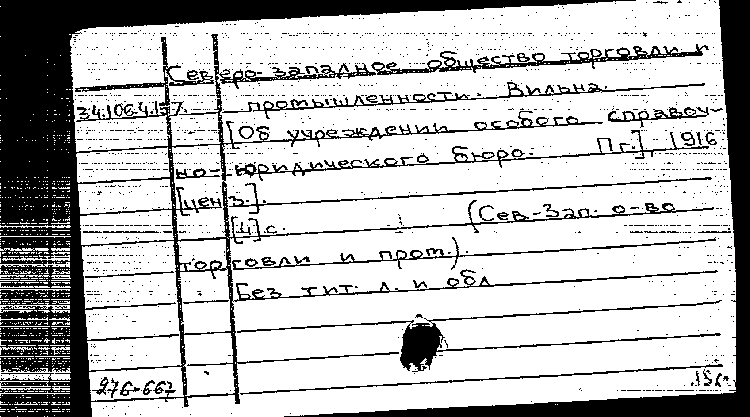 Северо-западное общество торговли и
34.106.4.157. промышленности. Вильна.
[Об учреждении особого справоч-
но-юридического бюро. Пг.], 1916
[ценз.].
[4] с. (Сев.-Зап. о-во
торговли и пром.).
Без тит. л. и обл
276-667